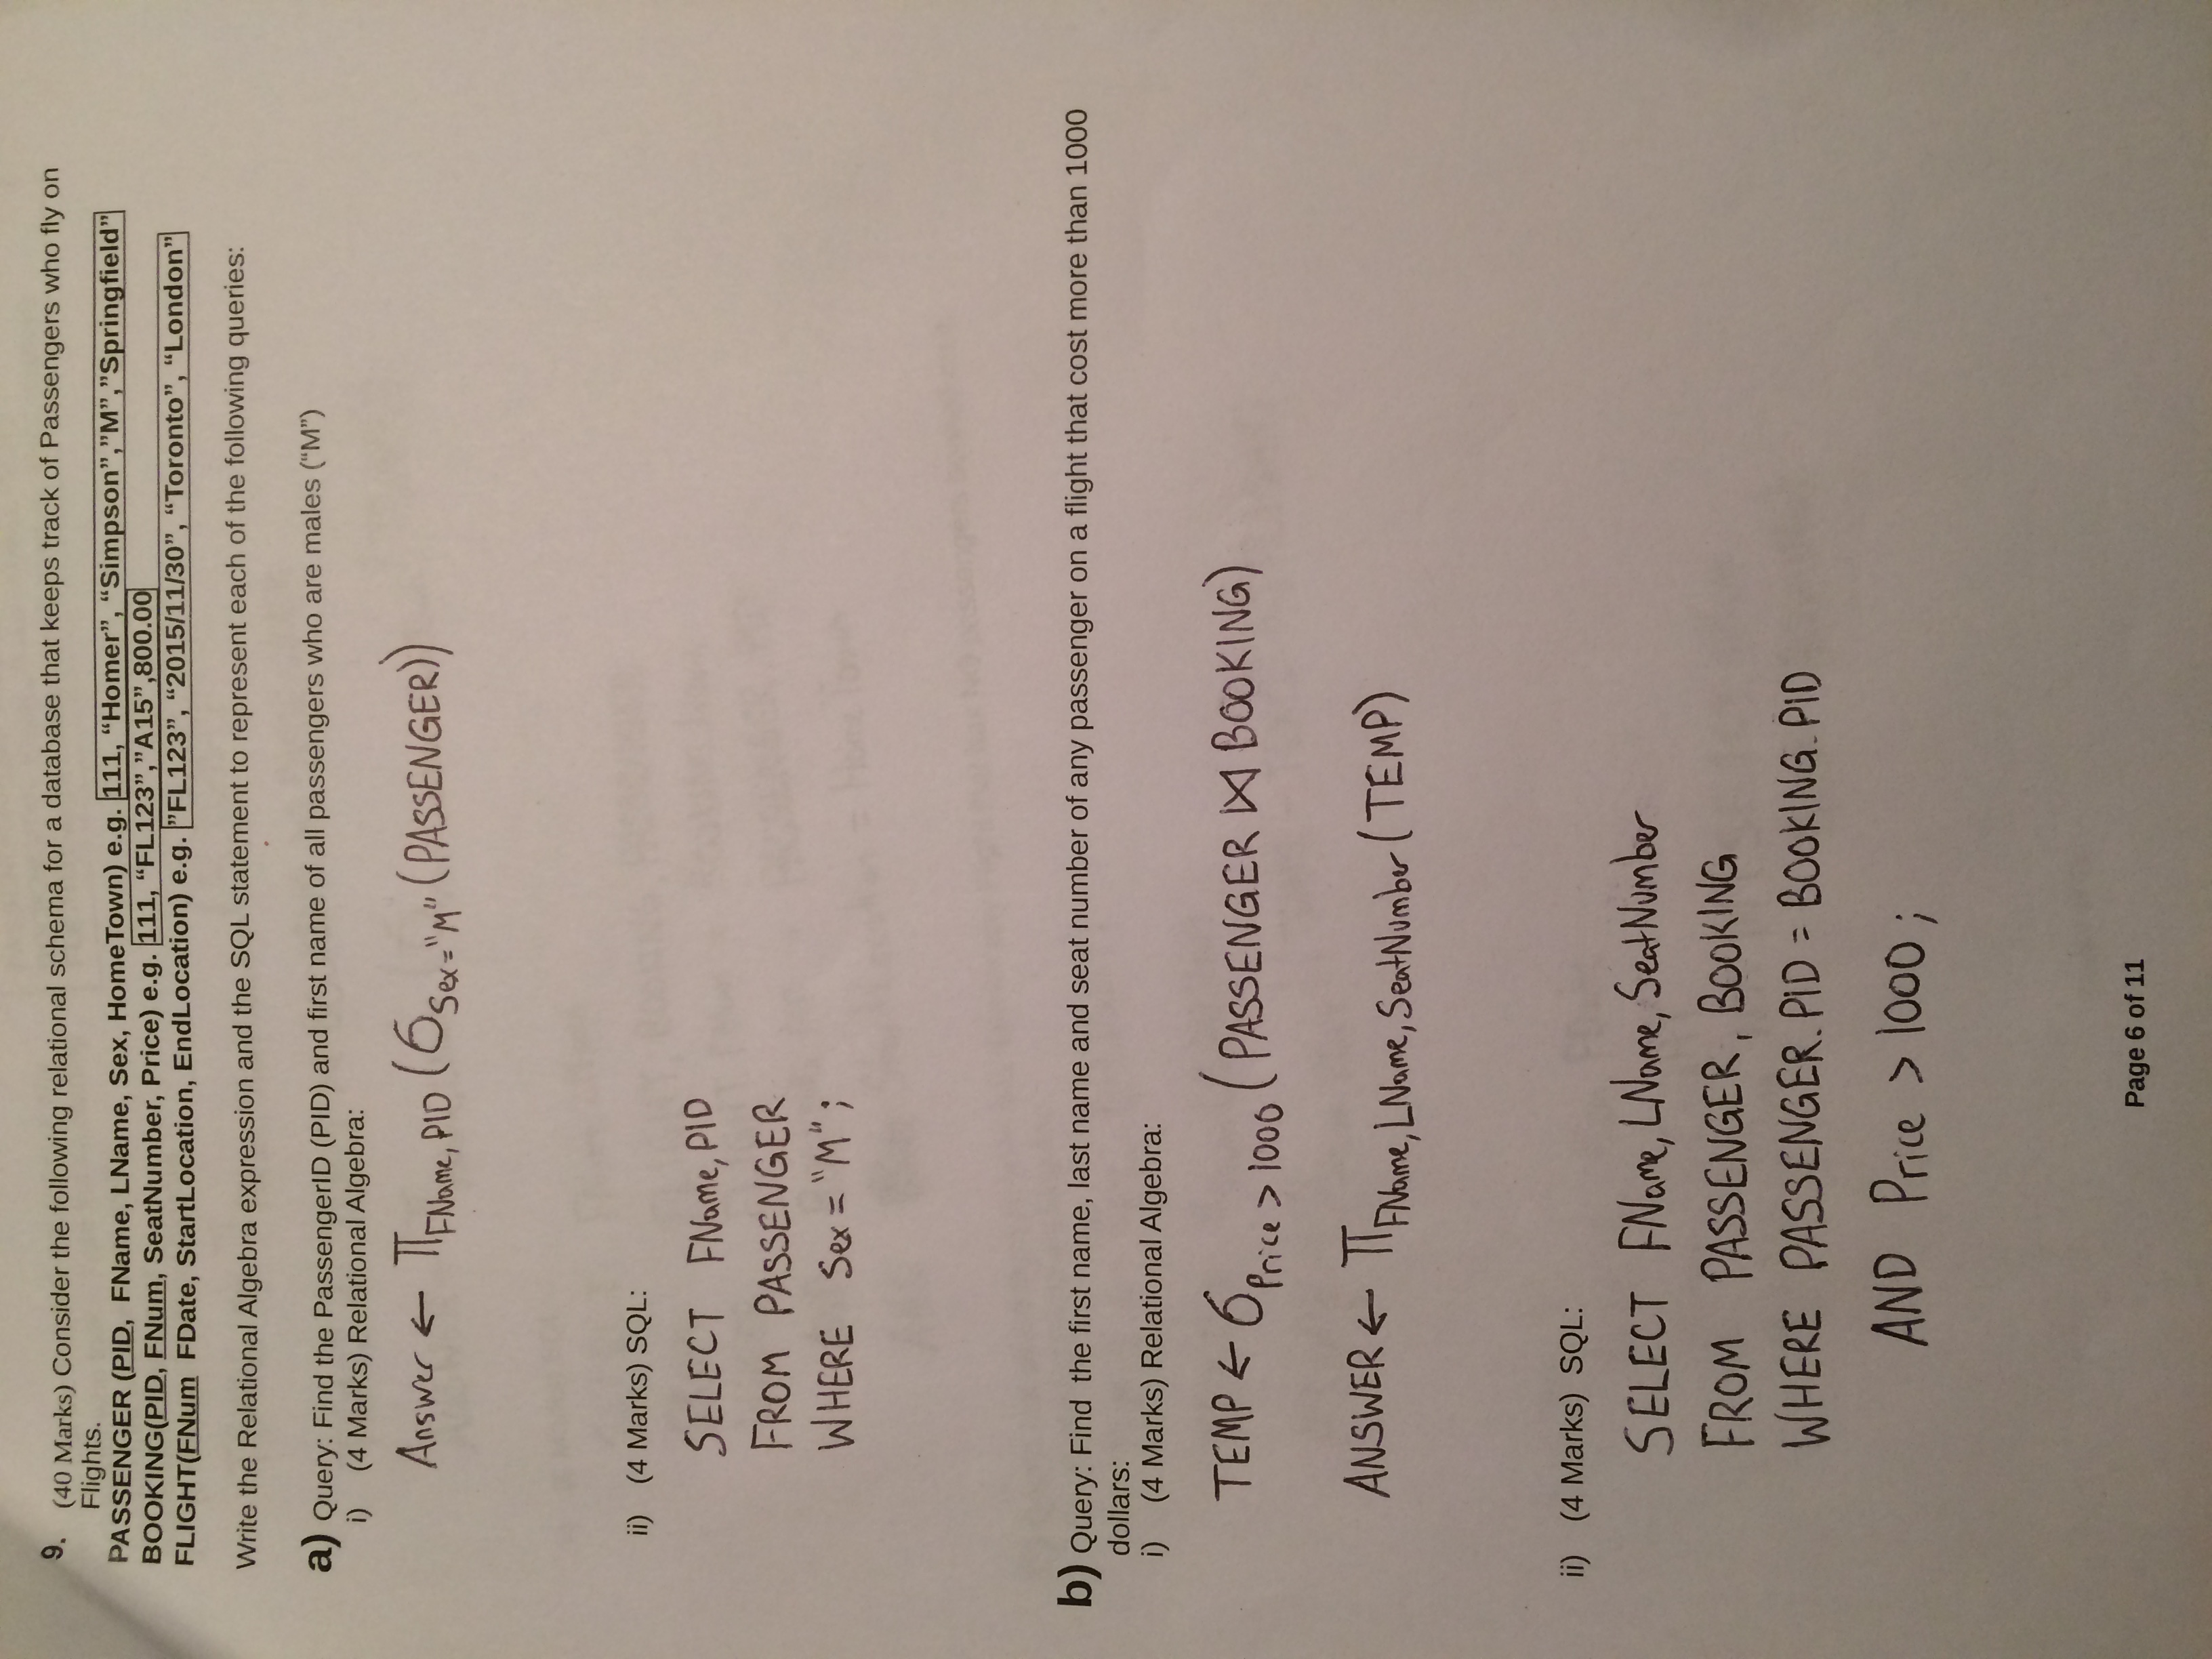 9. (40 Marks) Consider the following relational schema for a database that keeps track of Passengers who fly on
Flights.
PASSENGER (PID, FName, LName, Sex, HomeTown) e.g. 111, “Homer”, “Simpson”,”M”,”Springfield”
BOOKING(PID, FNum, SeatNumber, Price) e.g. 111, “FL123”,”A15”,800.00
FLIGHT(FNum FDate, StartLocation, EndLocation) e.g. ”FL123”, “2015/11/30”, “Toronto”, “London”
Write the Relational Algebra expression and the SQL statement to represent each of the following queries:
a) Query: Find the PassengerID (PID) and first name of all passengers who are males (“M”)
i) (4 Marks) Relational Algebra:
Answer ← π FName, PID (σ Sex="M" (PASSENGER))
ii) (4 Marks) SQL:
SELECT FName, PID
FROM PASSENGER
WHERE Sex = "M";
b) Query: Find the first name, last name and seat number of any passenger on a flight that cost more than 1000
dollars:
i) (4 Marks) Relational Algebra:
TEMP ← σ Price > 1000 (PASSENGER ⋈ BOOKING)
ANSWER ← π FName, LName, SeatNumber (TEMP)
ii) (4 Marks) SQL:
SELECT FName, LName, SeatNumber
FROM PASSENGER, BOOKING
WHERE PASSENGER.PID = BOOKING.PID
AND Price > 1000;
Page 6 of 11